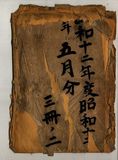 昭和十二年度昭和十三
年五月分
三冊ノ二